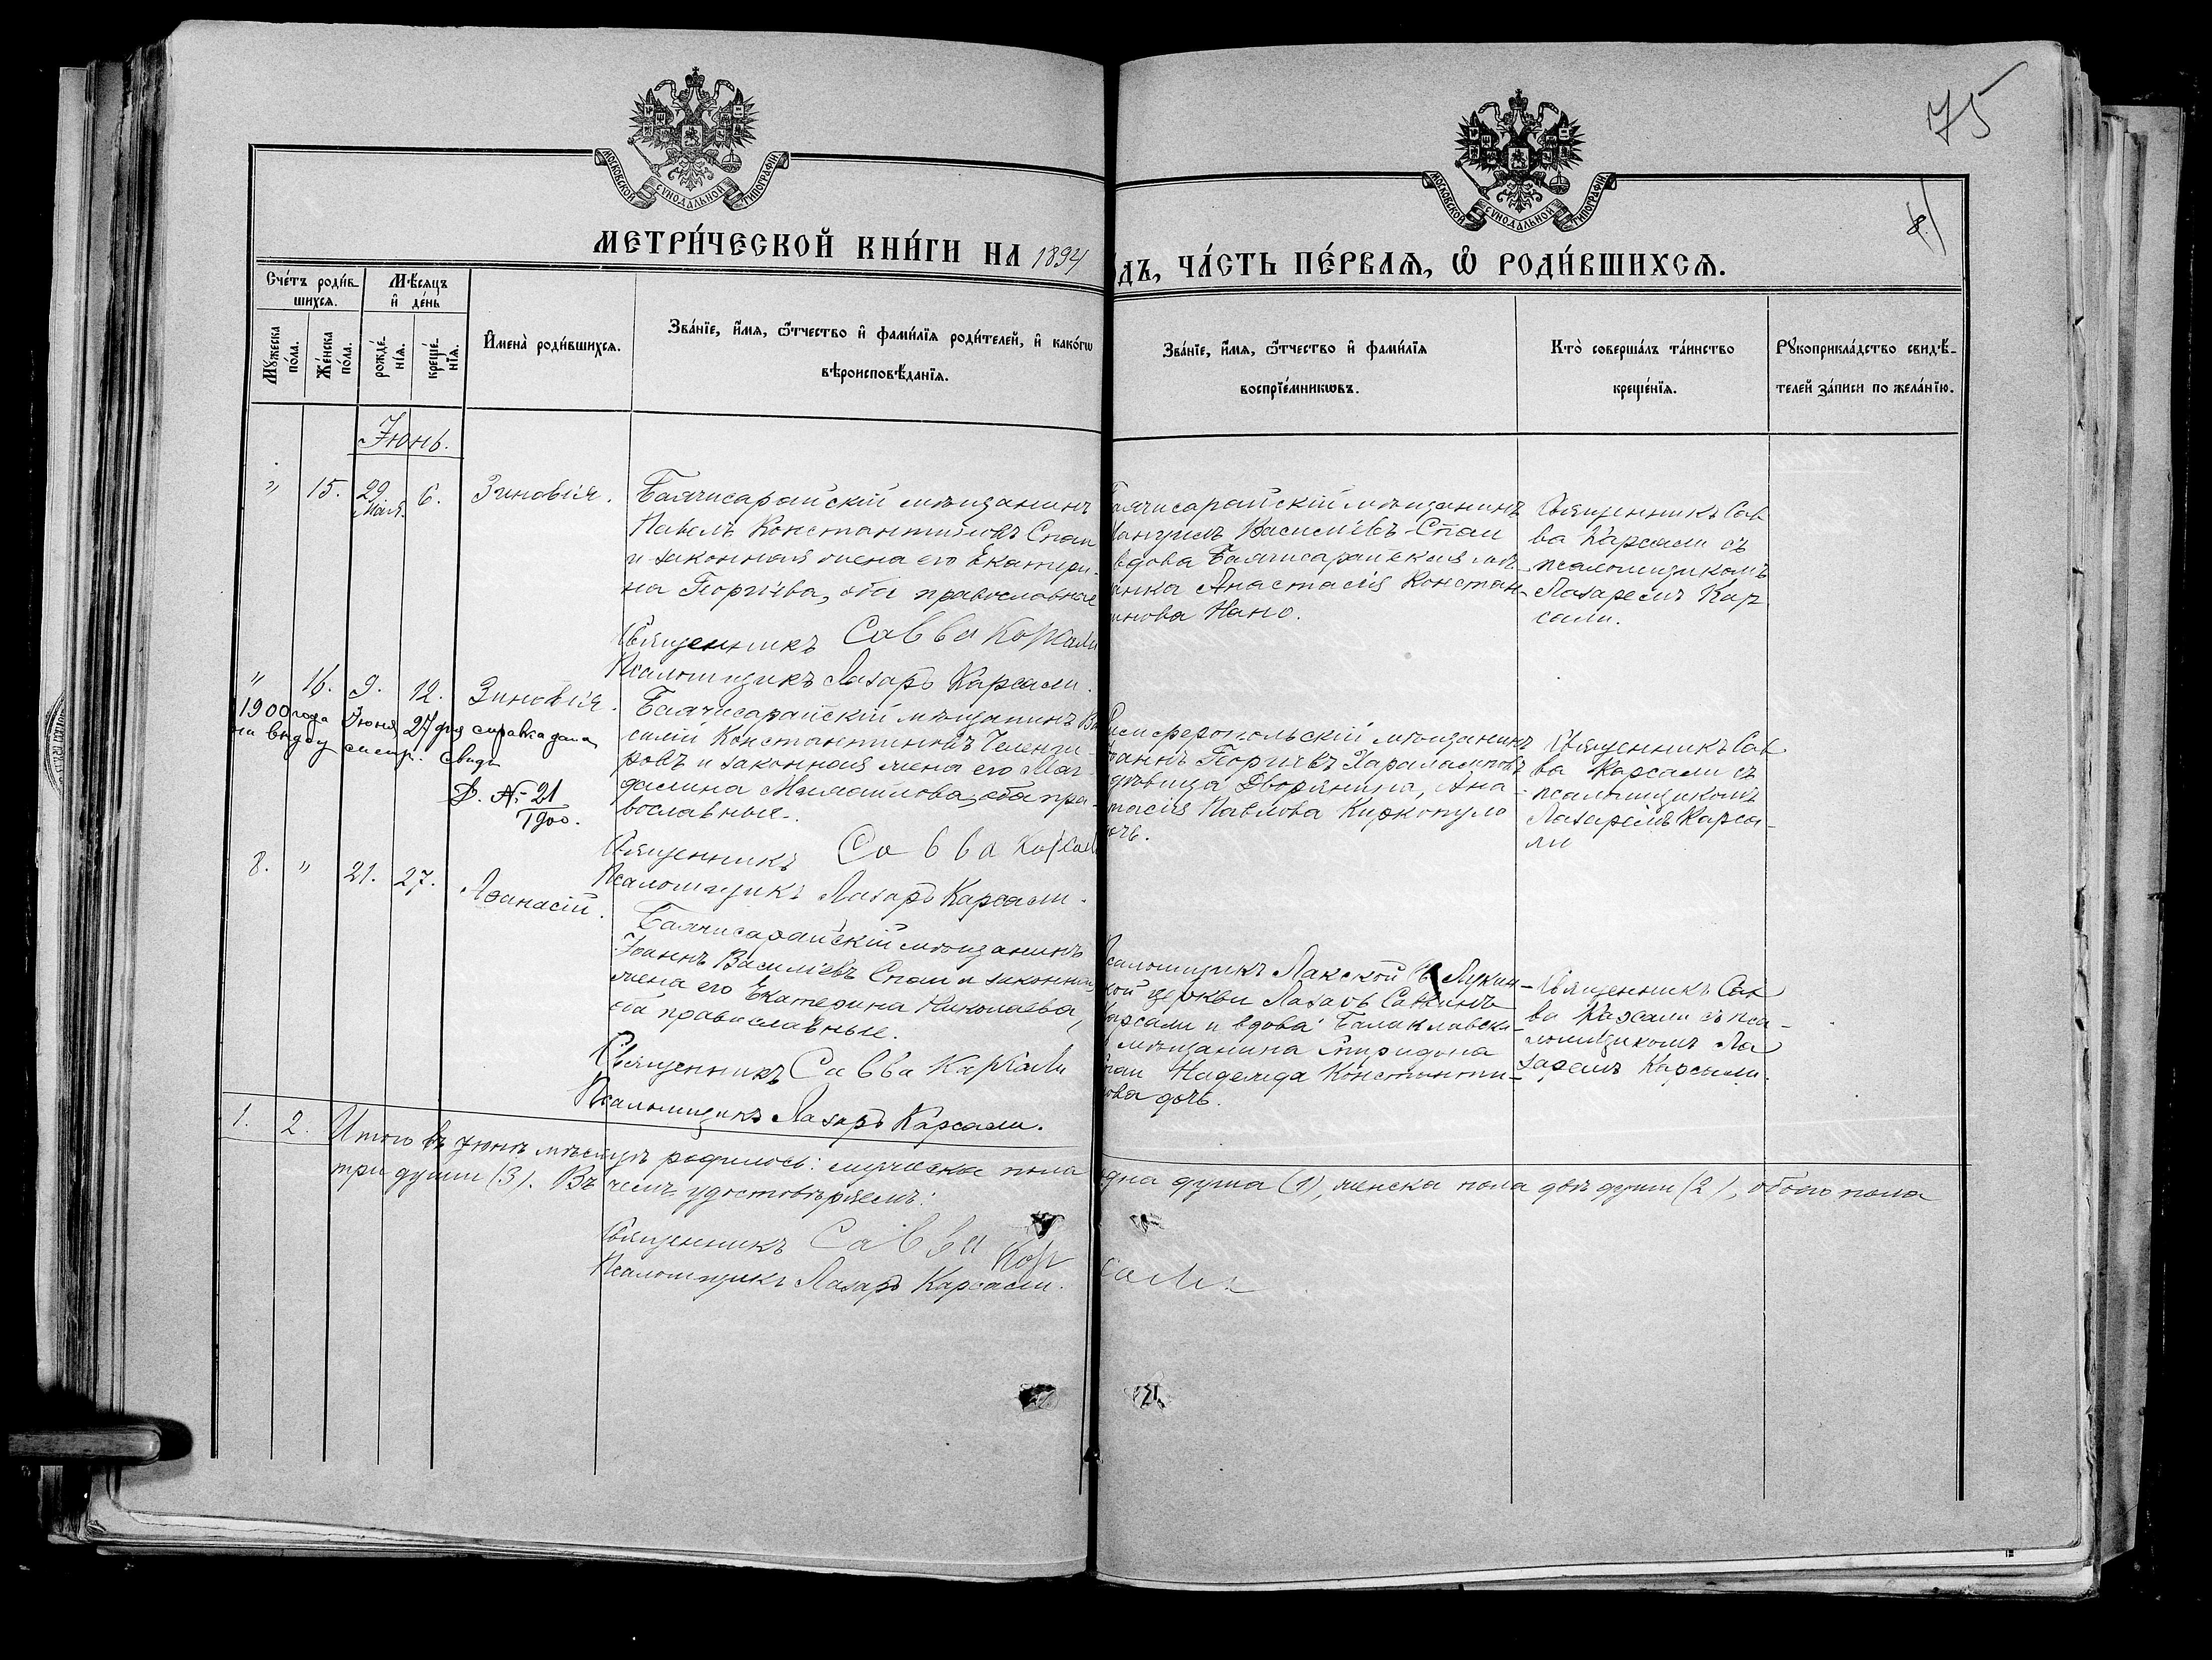 75
МОСКОВСКОЙ СѴНОДАЛЬНОЙ ТИПОГРАФІИ
МОСКОВСКОЙ СѴНОДАЛЬНОЙ ТИПОГРАФІИ
МЕТРИ́ЧЕСКОЙ КНИ́ГИ НА 1894
ДЪ, ЧА́СТЬ ПЕ́РВАЯ, Ѡ РОДИ́ВШИХСЯ.
Сче́тъ роди́в-
шихся.
Мѣ́сяцъ
и҆ де́нь
Му́жеска
по́ла.
Же́нска
по́ла.
рожде́-
нїя.
креще́-
нїя.
И҆мена̀ роди́вшихся.
Зва́нїе, и҆́мя, ѻ҆́тчество и҆ фами́лїя роди́телей, и҆ како́гѡ
вѣроисповѣ́данїя.
Зва́нїе, и҆́мя, ѻ҆́тчество и҆ фами́лїя
воспрїе́мникѡвъ.
Кто̀ соверша́лъ та́инство
креще́нїя.
Рꙋкоприкла́дство свидѣ́-
телей за́писи по жела́нїю.
Іюнь.
" 15. 29 Мая. 6. Зиновія.
Бахчисарайскій мѣщанинъ
Павелъ Константиновъ Спаи
и законная жена его Екатери-
на Георгіева, оба православные
Священникъ Савва Карсали
Псаломщикъ Лазарь Карсали.
ахчисарайскій мѣщанинъ
Василіевъ Спаи
вдова Бахчисарайская мѣ-
анка Анастасія Констан-
инова Нано.
Священникъ Сав
ва Карсали съ
псаломщикомъ
Лазаремъ Кар
сали.
" 16. 9. 12. Зиновія.
1900 года Іюня 27 дня справка дана
на выдачу свид.
№ 21
1900.
Бахчисарайскій мѣщанинъ Ва
силій Константиновъ Челенги-
ровъ и законная жена его Маг-
далина оба пра-
вославные.
Священникъ Савва Карсали
Псаломщикъ Лазарь Карсали.
имферопольскій мѣщанинъ
Георгіевъ Харалампов
дѣвица Дворянина, Ана-
тасія Павлова Киркопуло
очь.
Священникъ Сав
ва Карсали съ
псаломщикомъ
Лазаремъ Карса-
ли
8. " 21. 27. Аѳанасій.
Бахчисарайскій мѣщанинъ
Іоаннъ Василіевъ Спаи и законная
жена его Екатерина Николаева,
оба православные.
Священникъ Савва Карсали
Псаломщикъ Лазарь Карсали.
саломщикъ Лакской Св Лукин-
кой церкви Лазарь Саввинъ
арсали и вдова Балаклавска-
мѣщанина Спиридона
паи Надежда Константи-
ова дочь.
Священникъ Сав
ва Карсали съ пса-
ломщикомъ Ла
заремъ Карсали.
1. 2. Итого въ Іюнѣ мѣсяцѣ родилось: мужеска пола
дна душа (1), женска пола двѣ души (2), обоего пола
три души (3). Въ чемъ удостовѣряемъ:
Священникъ Савва Кар
сали
Псаломщикъ Лазарь Карсали.